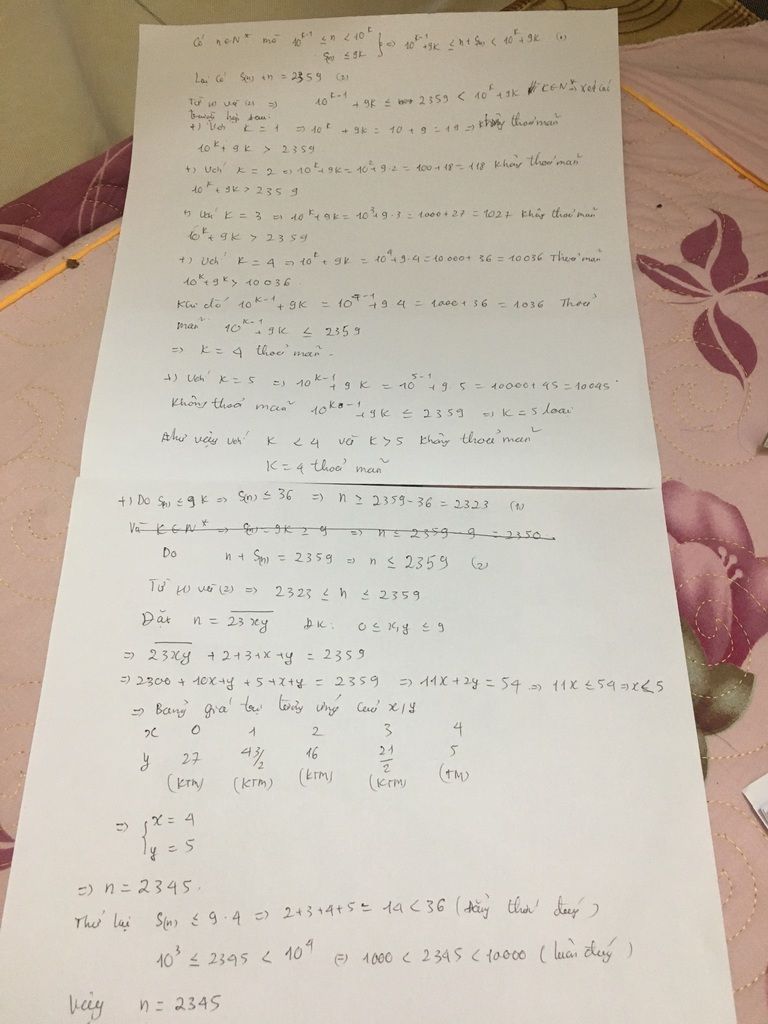 Có n ∈ N* mà 10^{k-1} ≤ n < 10^k
S(n) ≤ 9k } => 10^{k-1} + 9k ≤ n + S(n) < 10^k + 9k (1)
Lại có S(n) + n = 2359 (2)
Từ (1) và (2) => 10^{k-1} + 9k ≤ 2359 < 10^k + 9k K ∈ N* => xét các
trường hợp sau:
+) Với K = 1 => 10^k + 9k = 10 + 9 = 19 => không thoả mãn
10^k + 9k > 2359
+) Với K = 2 => 10^k + 9k = 10^2 + 9.2 = 100 + 18 = 118 không thoả mãn
10^k + 9k > 2359
+) Với K = 3 => 10^k + 9k = 10^3 + 9.3 = 1000 + 27 = 1027 không thoả mãn
10^k + 9k > 2359
+) Với K = 4 => 10^k + 9k = 10^4 + 9.4 = 10000 + 36 = 10036 Thoả mãn
10^k + 9k > 10036.
Khi đó 10^{k-1} + 9k = 10^{4-1} + 9.4 = 1000 + 36 = 1036 Thoả
mãn 10^{k-1} + 9k ≤ 2359
=> K = 4 thoả mãn.
+) Với K = 5 => 10^{k-1} + 9k = 10^{5-1} + 9.5 = 10000 + 45 = 10045.
Không thoả mãn 10^{k-1} + 9k ≤ 2359 => K = 5 loại
Như vậy với K < 4 và K > 5 không thoả mãn
K = 4 thoả mãn
+) Do S(n) ≤ 9k => S(n) ≤ 36 => n ≥ 2359 - 36 = 2323 (1)
Và K ∈ N* => S(n) = 9k ≥ 9 => n ≤ 2359 - 9 = 2350.
Do n + S(n) = 2359 => n ≤ 2359 (2)
Từ (1) và (2) => 2323 ≤ n ≤ 2359
Đặt n = \overline{23xy} ĐK: 0 ≤ x,y ≤ 9
=> \overline{23xy} + 2+3+x+y = 2359
=> 2300 + 10x+y + 5+x+y = 2359 => 11x + 2y = 54 => 11x ≤ 54 => x < 5
=> Bảng giá trị tương ứng của x,y
x 0 1 2 3 4
y 27 43/2 16 21/2 5
(KTM) (KTM) (KTM) (KTM) (TM)
=> { x = 4
y = 5
=> n = 2345.
Thử lại S(n) ≤ 9.4 => 2+3+4+5 = 14 < 36 (Đẳng thức đúng)
10^3 ≤ 2345 < 10^4 <=> 1000 < 2345 < 10000 (luôn đúng)
Vậy n = 2345